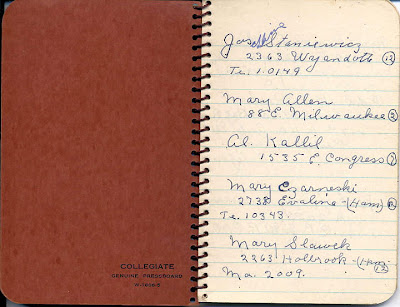 COLLEGIATE
GENUINE PRESSBOARD
Staniewicz
2363 Wyandott (12)
Te. 10149
Mary Allen
88 E. Milwaukee (2)
Al. Kallil
1535 E. Congress (7)
Mary Czarneski
2738 Evaline - (Ham)
Te. 10343.
Mary Slawek
2263 Holbrook - (Ham)
(12)
Ma. 2009.